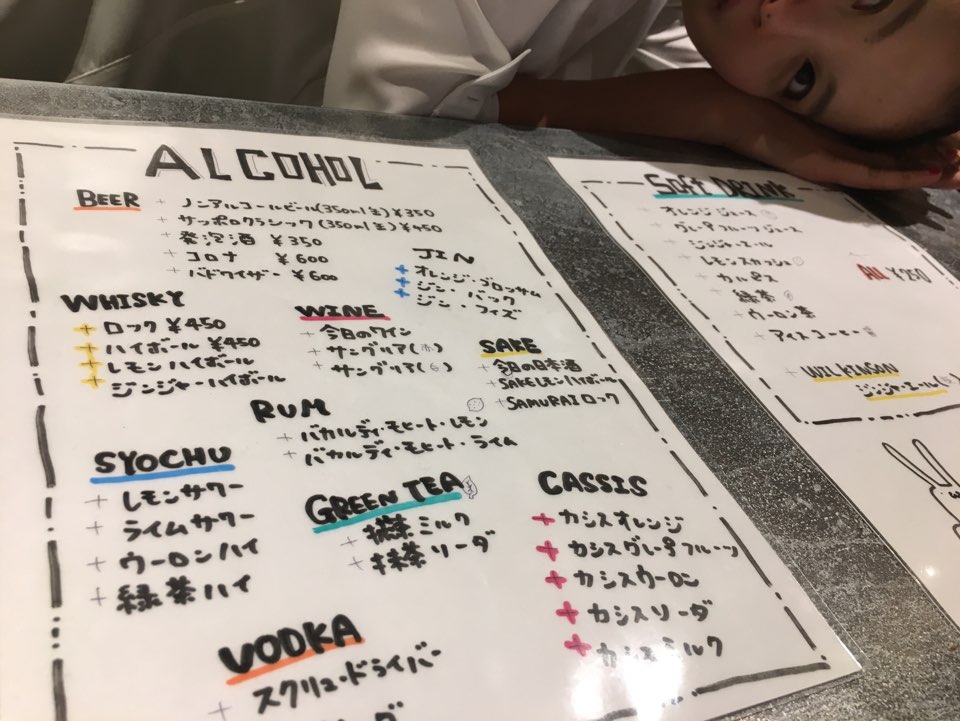 ALCOHOL
BEER
+ ノンアルコールビール(350ml缶)¥350
+ サッポロクラシック(350ml缶)¥450
+ 発泡酒 ¥350
+ コロナ ¥600
+ バドワイザー ¥600
JIN
+ オレンジ・ブロッサム
+ ジン・バック
+ ジン・フィズ
WHISKY
+ ロック ¥450
+ ハイボール ¥450
+ レモンハイボール
+ ジンジャーハイボール
WINE
+ 今日のワイン
+ サングリア(赤)
+ サングリア(白)
SAKE
+ 今日の日本酒
+ SAKEレモンハイボール
+ SAMURAIロック
RUM
+ バカルディ・モヒート・レモン
+ バカルディ・モヒート・ライム
SYOCHU
+ レモンサワー
+ ライムサワー
+ ウーロンハイ
+ 緑茶ハイ
GREEN TEA
+ 抹茶ミルク
+ 抹茶ソーダ
CASSIS
+ カシスオレンジ
+ カシスグレープフルーツ
+ カシスウーロン
+ カシスソーダ
+ カシスミルク
VODKA
+ スクリュードライバー
Soft DRINK
+ オレンジジュース
+ グレープフルーツジュース
+ ジンジャエール
+ レモンスカッシュ
+ カルピス
+ 緑茶
+ ウーロン茶
+ アイスコーヒー
ALL ¥250
+ WILKINSON
ジンジャエール